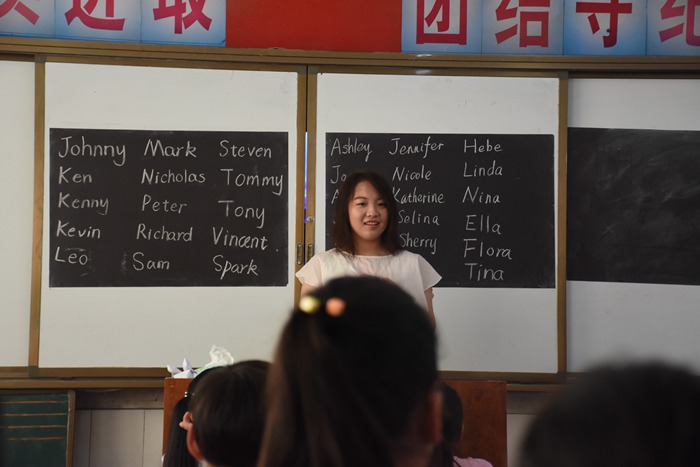 进取
团结守纪
Johnny Mark Steven
Ken Nicholas Tommy
Kenny Peter Tony
Kevin Richard Vincent
Leo Sam Spark
Ashley Jennifer Hebe
Nicole Linda
Katherine Nina
Selina Ella
Sherry Flora
Tina